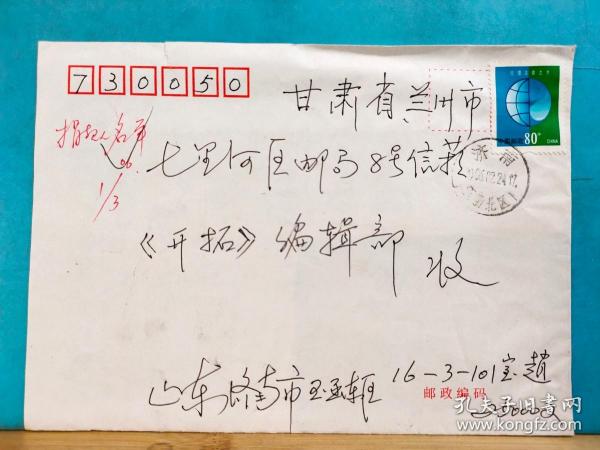 730050
甘肃省兰州市
捐款人名单
七里河区邮局8号信箱
1/3
《开拓》编辑部 收
山东济南市
16-3-101室 赵
邮政编码
80分
中国邮政
CHINA
济南
孔夫子旧书网
www.kongfz.com